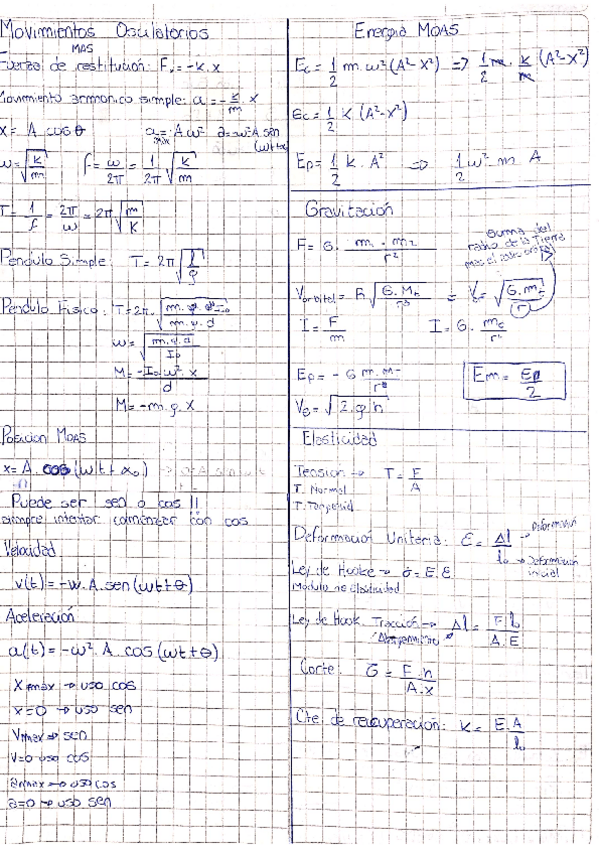 Movimientos Osculatorios
MAS
Fuerza de restitución: F = -k.x
Movimiento armonico simple: a = -k/m x
x = A cos θ   a máx = A w²   a = -w² A sen (wt+α)
w = √(k/m)   f = w/2π = 1/2π √(k/m)
T = 1/f = 2π/w = 2π √(m/k)
Pendulo Simple: T = 2π √(l/g)
Pendulo Fisico: T = 2π.
m.g.d
w = √(m.g.d/Io)
M = -Io w². x / d
M = -m.g.x
Posicion MOAS
x = A. cos (wt + α₀)
Puede ser sen o cos !!
siempre intentar comenzar con cos
Velocidad
v(t) = -w. A. sen (wt+θ)
Aceleración
a(t) = -w² A cos (wt+θ)
X máx → uso cos
x=0 → uso sen
Vmax → sen
V=0 uso cos
a max → uso cos
a=0 → uso sen
Energia MOAS
Ec = 1/2 m. w² (A²-X²) => 1/2 m. k/m (A²-X²)
Ec = 1/2 k (A²-X²)
Ep = 1/2 k. A² => 1/2 w². m A
Gravitación
F = G. m₁. m₂ / r²
suma del
radio de la Tierra
Vorbital = R √(G.Mt/r³) = V = √(G.mt/r)
I = F/m   I = G.
Ep = - G m. m   Em = Ep/2
V = √(2.g h)
Elasticidad
Tension → T = F/A
T. Normal
T. Tangencial
Deformación Unitaria: ε = Δl/l₀ → Deformación
→ Deformación
inicial
Ley de Hooke → σ = E. ε
Modulo de elasticidad
Ley de Hook Tracción → Δl = F l₀ / A.E
Corte: G = F.h / A.x
Cte de recuperación: K = E.A / l₀